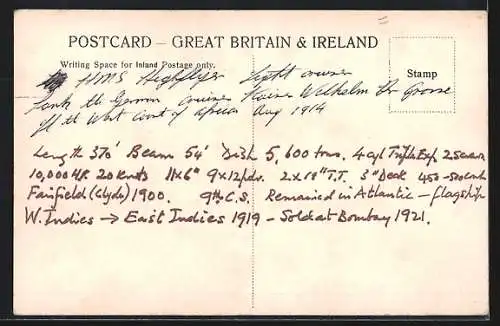 POSTCARD – GREAT BRITAIN & IRELAND
Writing Space for Inland Postage only.
Stamp
HMS Highflyer light cruiser
Sank the German cruiser Kaiser Wilhelm der Grosse
off the West Coast of Africa Aug 1914
Length 370' Beam 54' Disp 5,600 tons. 4 cyl Triple Exp 2 screws
10,000 H.P. 20 knots 11x6" 9x12pdrs. 2x18" T.T. 3" Deck 450-500 men
Fairfield (Clyde) 1900. 9th C.S. Remained in Atlantic – flagship
W. Indies → East Indies 1919 – Sold at Bombay 1921.